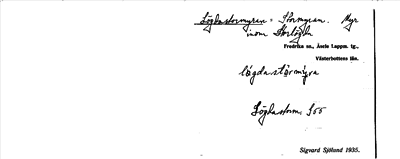 Lögdastormyren = Stormyran. Myr
inom Storlögda
Fredrika sn., Åsele Lappm. tg.,
Västerbottens län.
lögdastårmýra
Lögdastorm. 955
Sigvard Sjölund 1935.